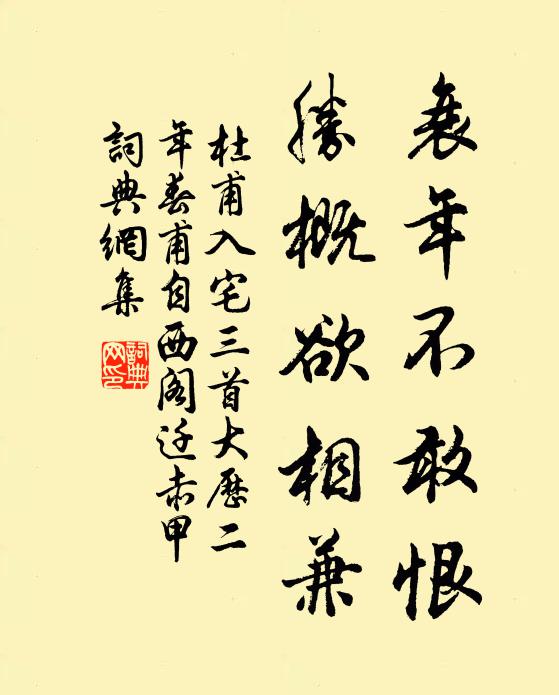 衰年不敢恨
勝概欲相兼
杜甫入宅三首大歷二
年春甫自西閣迁赤甲
詞典網集
詞典
网印